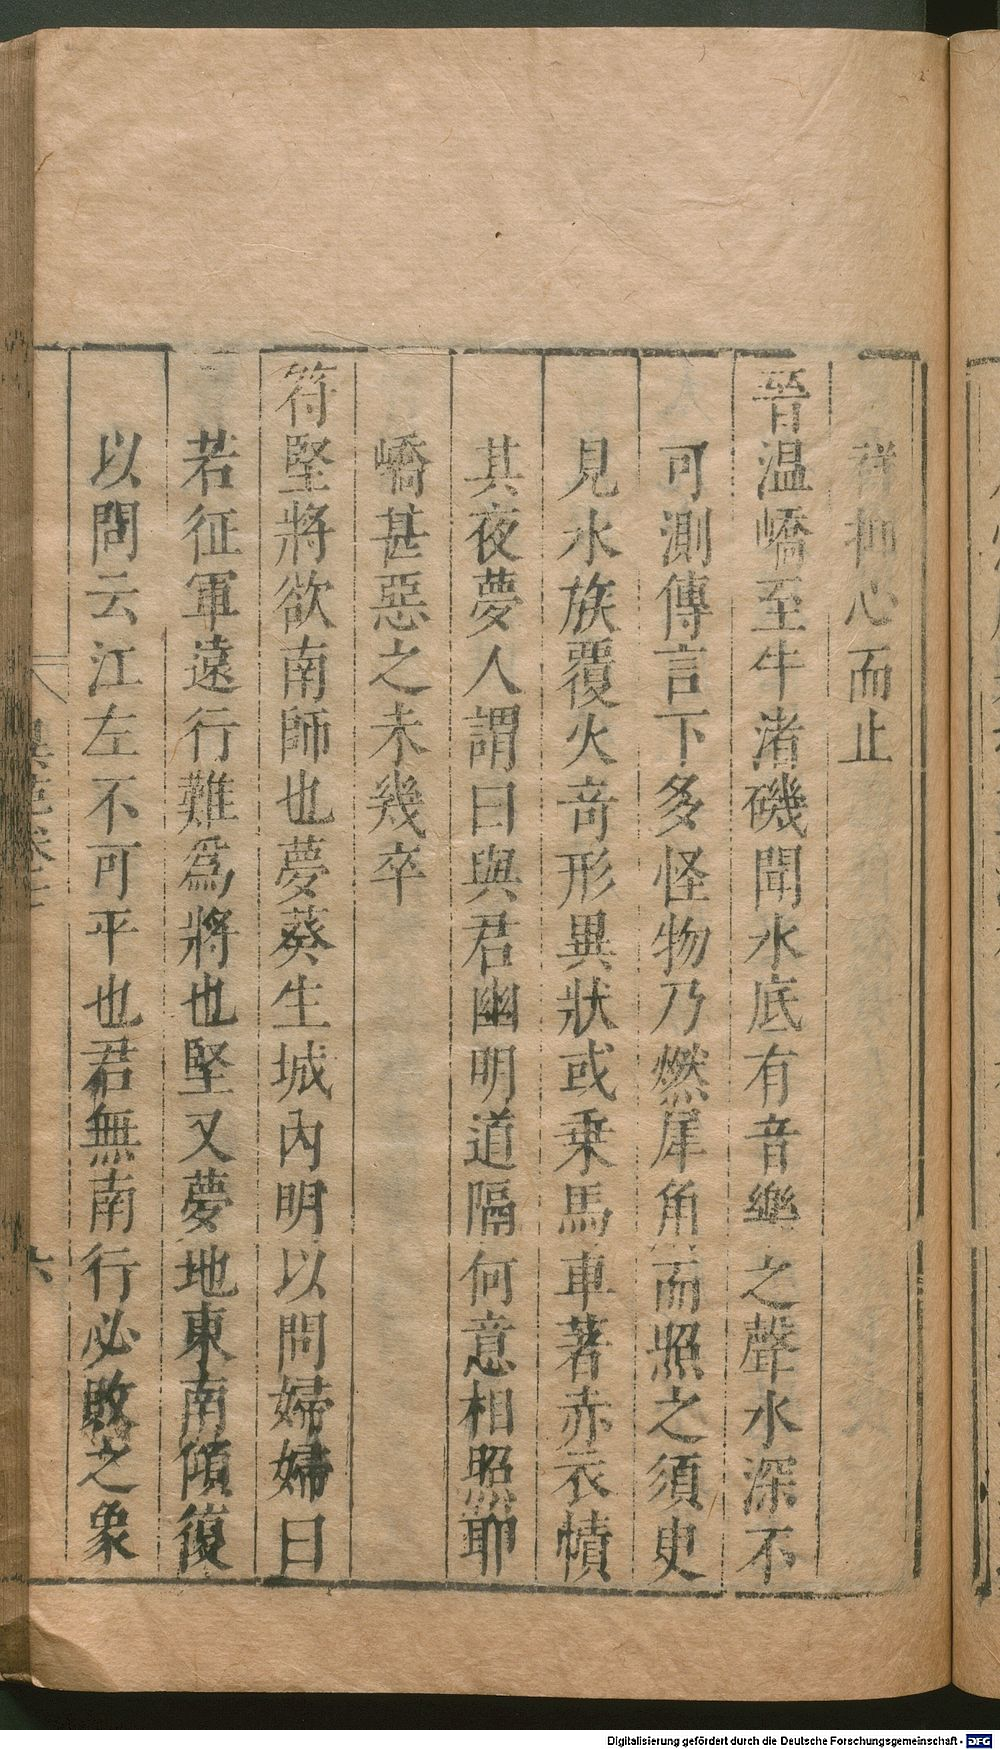 祥抑心而止
晉温嶠至牛渚磯聞水底有音樂之聲水深不
可測傳言下多怪物乃燃犀角而照之須史
見水族覆火竒形異狀或乗馬車著赤衣幘
其夜夢人謂曰與君幽明道隔何意相照耶
嶠甚惡之未幾卒
符堅將欲南師也夢葵生城内明以問婦婦曰
若征軍遠行難為將也堅又夢地東南傾復
以問云江左不可平也君無南行必敗之象
異苑卷七
六
Digitalisierung gefördert durch die Deutsche Forschungsgemeinschaft - DFG